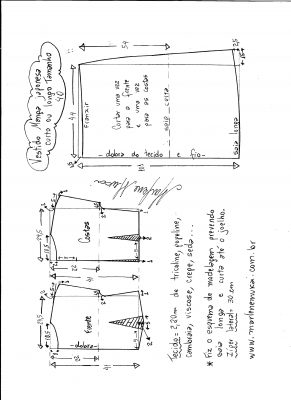 Vestido Manga japonesa
curto ou longo Tamanho
40
59
25
15
44
Franzir
Cortar uma vez
para a frente
e uma vez
para as costas
saia curta
saia longa
- dobra do tecido e fio -
Marlene Mukai
Costas
22
41
Frente
dobra
22
41
Tecido = 2,20m de tricoline, popeline,
cambraia, viscose, crepe, seda...
* Fiz o esquema de modelagem prevendo
saia longa e curta até o joelho.
Zíper lateral = 30 cm
www.marlenemukai.com.br